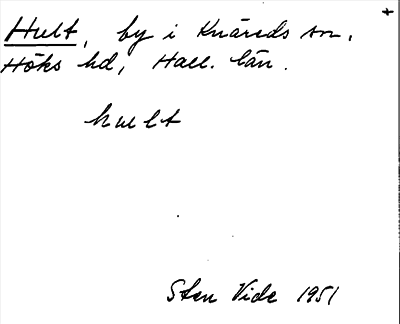 Hult, by i Knäreds sn,
Höks hd, Hall. län.
hult
Sten Vide 1951